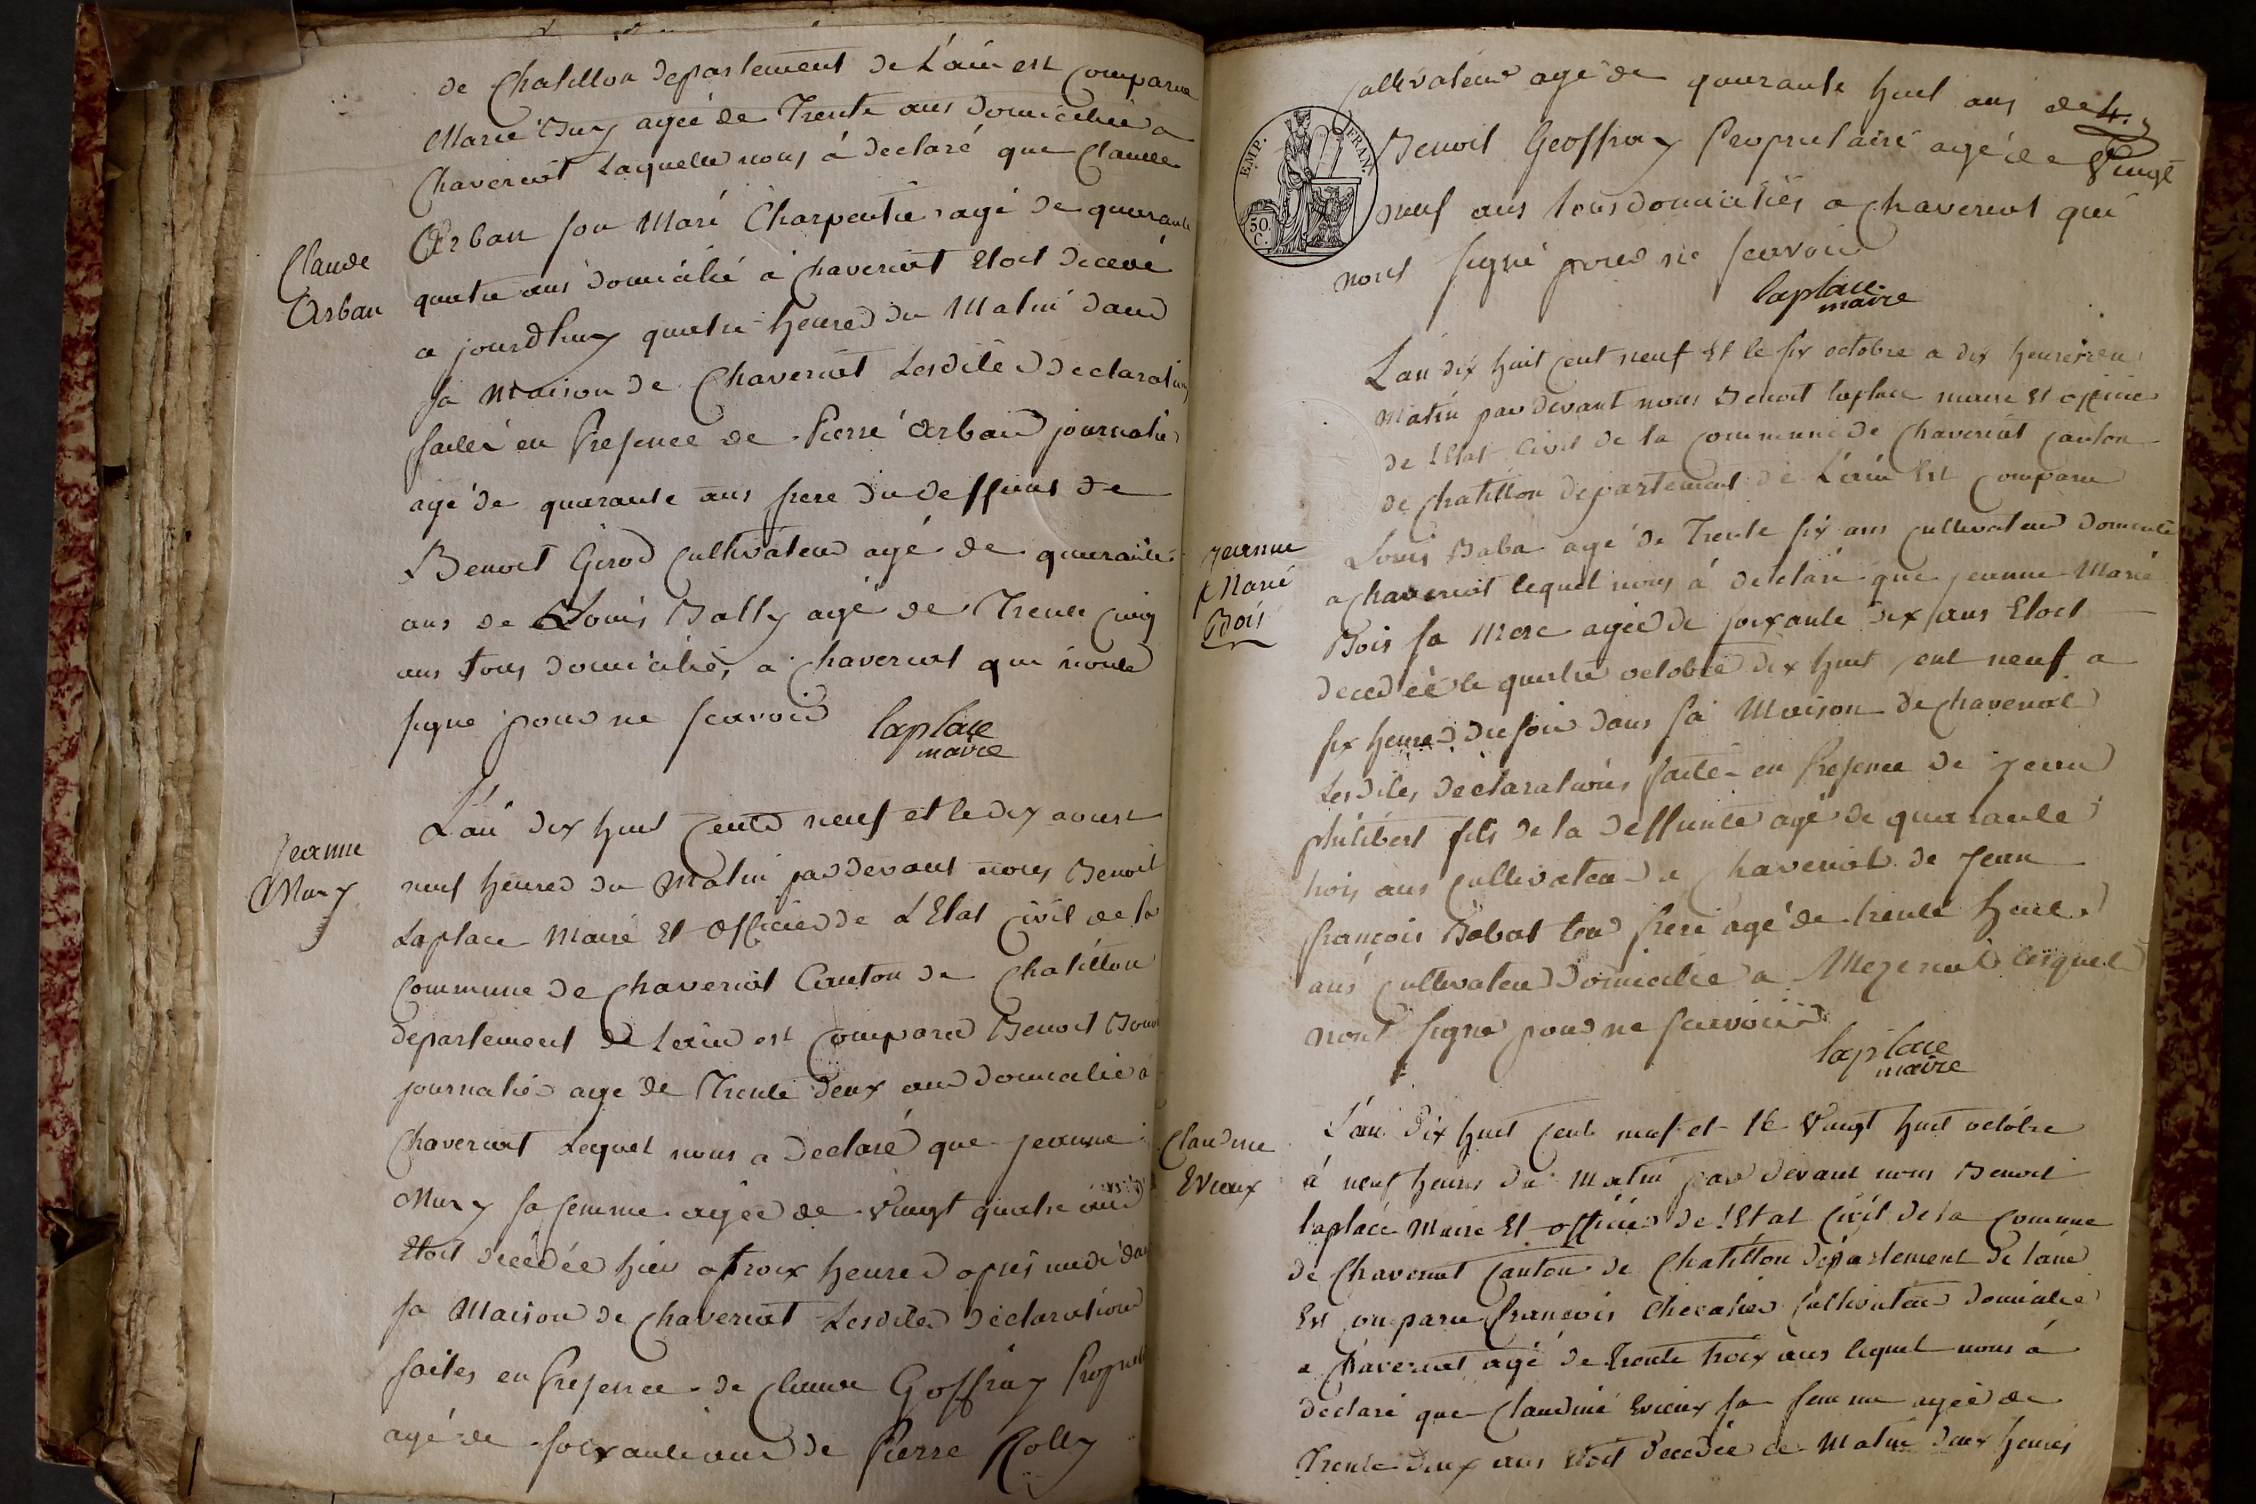 de Chatillon departement de L'ain est comparue
Marie Bury agée de Trente ans Domiciliée a
Chaveriat Laquelle nous à declaré que Claude
Arban son Mari Charpentier agé de quarante
Claude
Arban
quatre ans domicilié à Chaveriat Etoit decedé
a jourdhuy quatre heures du Matin dans
sa Maison de Chaveriat Lesdites declarations
faites en Presence de Pierre Arban journalié
agé de quarante ans frere du deffunt de
Benoit Girod Cultivateur agé de quarante
ans de Louis Bally agé de Trente Cinq
ans tous domiciliés a Chaveriat qui nont
signé pour ne scavoir
laplace
maire
L'an dix huit Cents neuf et le dix aoust
Jeanne
Mury
neuf heures du Matin par devant nous Benoit
Laplace Maire Et Officier de L'Etat Civil de la
Commune de Chaveriat Canton de Chatillon
departement de Lain est Comparu Benoit
journalié age de Trente deux ans domicilié a
Chaveriat Lequel nous a declaré que jeanne
Mury sa femme agée de Vingt quatre ans
Etoit decedée hier a troix heures apres midi dans
sa Maison de Chaveriat Lesdites declarations
faites en Presence de Claude Goffray
agé de soixante ans de Pierre Rolly
Cultivateur agé de quarante huit ans de
Benoit Geoffray Proprietaire agé de Vingt
EMP. FRAN.
50
C.
neuf ans tous domiciliés a Chaveriat qui
nont signé pour ne scavoir
laplace
maire
L'an dix huit Cent neuf Et le six octobre a dix heures du
Matin par devant nous Benoit laplace maire Et officier
de l'Etat Civil de la Commune de Chaveriat Canton
de Chatillon departement de L'ain Est Comparu
Louis Baba agé de Trente six ans Cultivateur domicilié
Jeanne
Marie
Bois
a Chaveriat lequel nous à declaré que jeanne Marie
Bois sa Mere agée de soixante dix ans Etoit
decedée le quatre octobre dix huit Cent neuf a
six heures du soir dans sa Maison de Chaveriat
Lesdites declarations faites en Presence de jean
philibert fils de la deffunte agé de quarante
trois ans Cultivateur a Chaveriat de Jean
françois Babat frere agé de trente huit
ans Cultivateur domicilié a Mezeriat lesquels
nont signé pour ne scavoir
laplace
maire
L'an dix huit Cent neuf et le Vingt huit octobre
Claudine
Evieux
à neuf heures du Matin par devant nous Benoit
laplace Maire Et officier de l'Etat Civil de la Comune
de Chaveriat Canton de Chatillon département de lain
Est Comparu François Chevalier Cultivateur domicilié
a Chaveriat agé de Trente troix ans lequel nous à
declaré que Claudine Evieux sa femme agée de
Trente deux ans Etoit decedée ce Matin deux heures